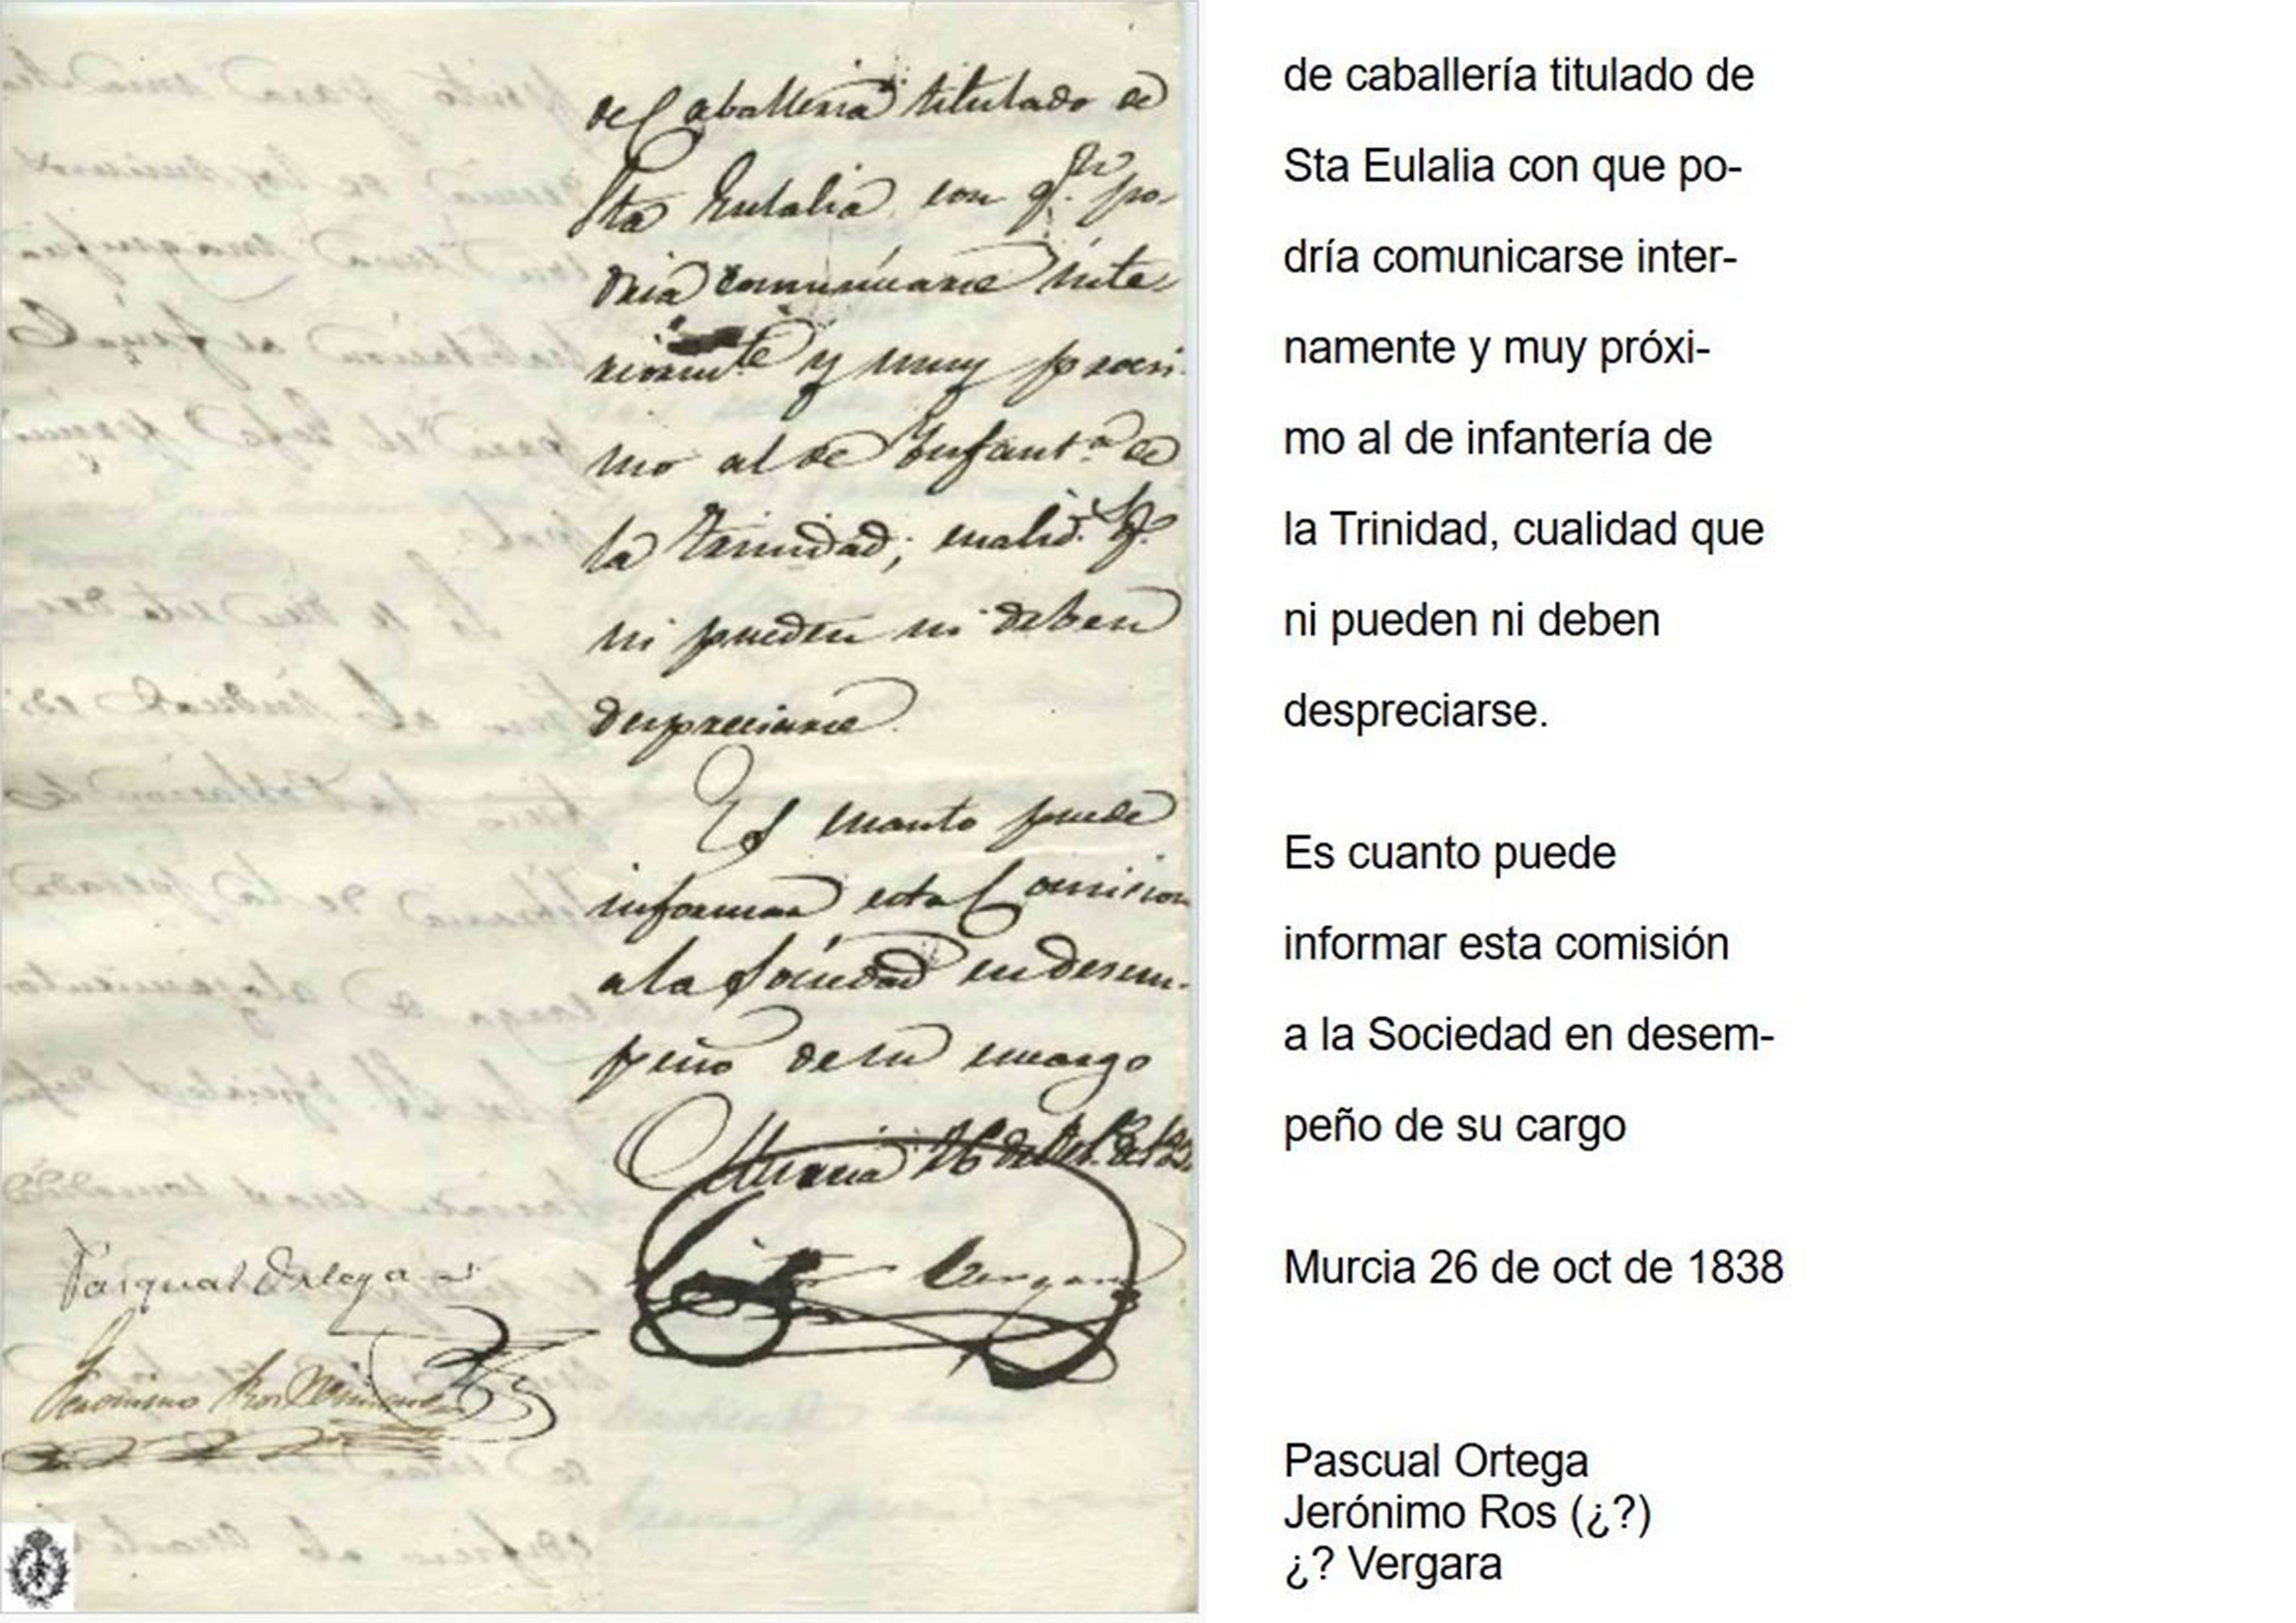 de Caballeria titulado de
Sta Eulalia con qe. po-
dria comunicarse inte-
riormte. y muy proxi-
mo al de Infanta. de
la Trinidad; cualid. qe.
ni pueden ni deben
despreciarse.
Es cuanto puede
informar esta Comision
a la Sociedad en desem-
peño de su encargo
Murcia 26 de
Vergara
Pasqual Ortega
Jeronimo Ros
de caballería titulado de
Sta Eulalia con que po-
dría comunicarse inter-
namente y muy próxi-
mo al de infantería de
la Trinidad, cualidad que
ni pueden ni deben
despreciarse.
Es cuanto puede
informar esta comisión
a la Sociedad en desem-
peño de su cargo
Murcia 26 de oct de 1838
Pascual Ortega
Jerónimo Ros (¿?)
¿? Vergara